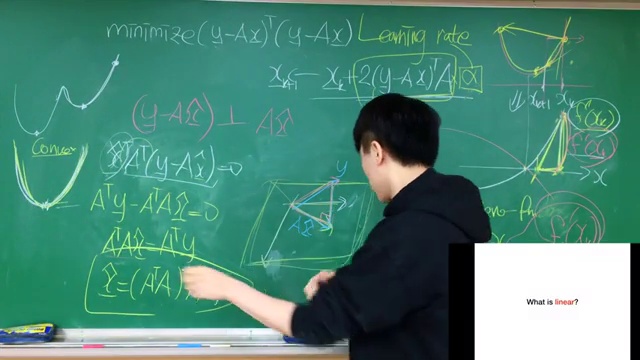 minimize (y-Ax)ᵀ(y-Ax) Learning rate
x_{k+1} ← x_k + 2(y-Ax)ᵀA α
(y-Ax̂) ⊥ Ax̂
Convex
x̂ᵀAᵀ(y-Ax̂)=0
Aᵀy-AᵀAx̂=0
AᵀAx̂=Aᵀy
x̂=(AᵀA)
y
Ax̂
x_{k+1} x_k
f'(x_k)
f(x_k)
x
What is linear?